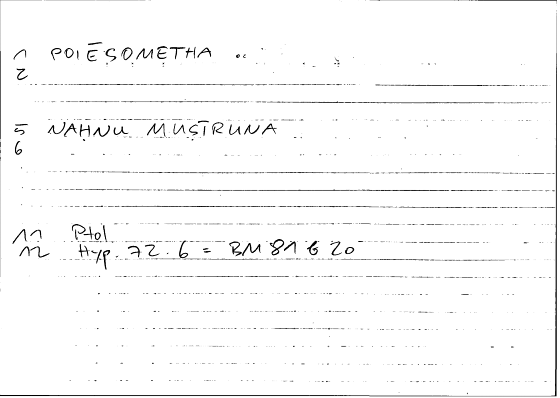 1 POIĒSOMETHA ..
2
5 NAḤNU MUṢĪRUNA
6
11 Ptol
12 Hyp. 72.6 = BM 81 b 20